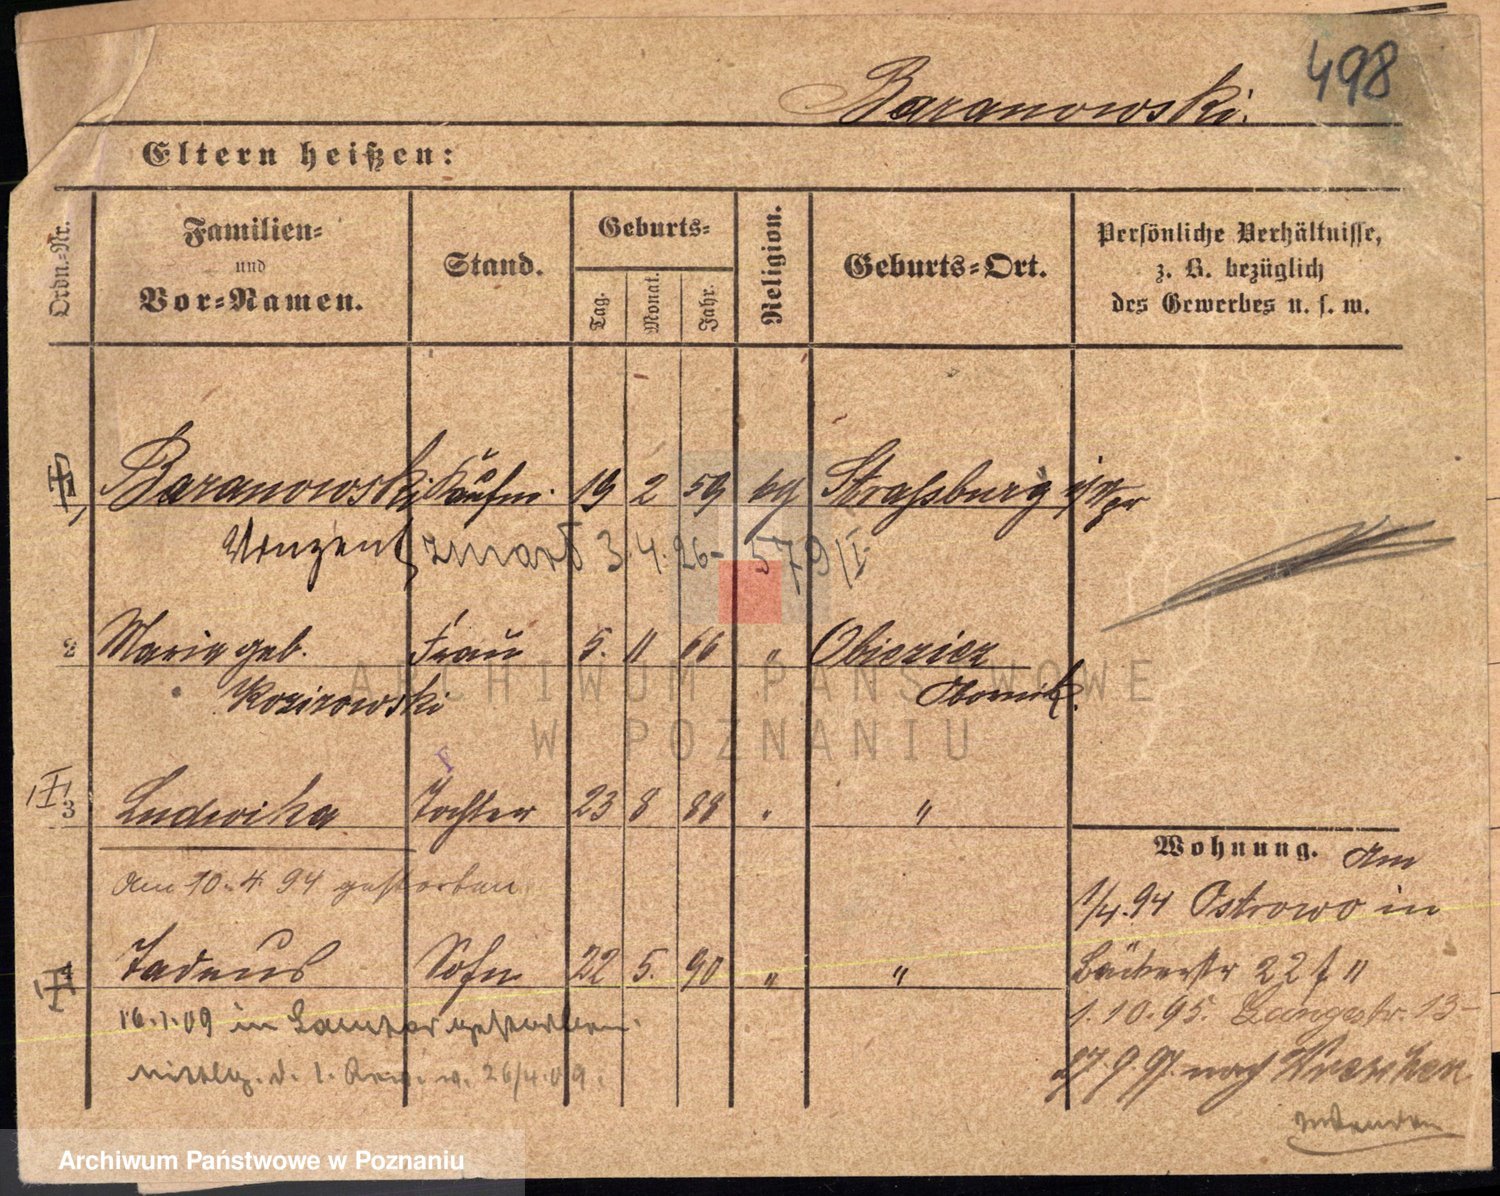 498
Baranowski.
Eltern heißen:
Ordn.-Nr.
Familien-
und
Vor-Namen.
Stand.
Geburts-
Tag.
Monat.
Jahr.
Religion.
Geburts-Ort.
Persönliche Verhältnisse,
z. B. bezüglich
des Gewerbes u. s. w.
1 Baranowski Kaufm. 19 2 59 kg Strassburg i/Wpr
Vinzent zmarł 3.4.26- 579/I
2 Maria geb. Frau 5. 11 66 " Obiezierz
Obornik.
3 Ludwika Tochter 23 8 88 " "
am 10.4.94 gestorben.
4 Tadeus Sohn 22 5. 90 " "
16.1.09 in gestorben.
26/4.09.
Wohnung. Am
1/4.94 Ostrowo in
22 f 11
1.10.95. Langestr. 13-
27.9.97. nach Wreschen
wenden
ARCHIWUM PAŃSTWOWE
W POZNANIU
Archiwum Państwowe w Poznaniu